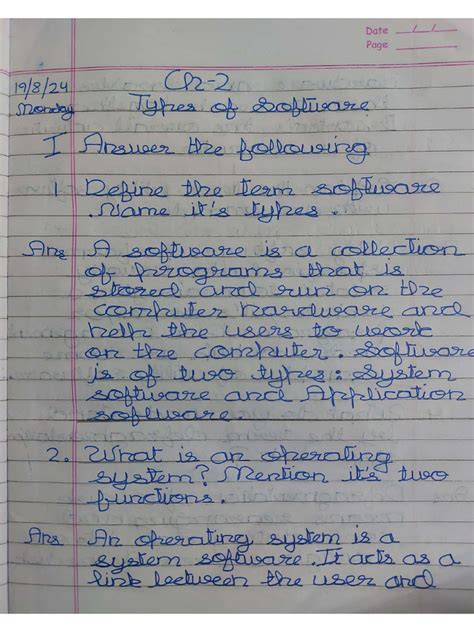 Date / /
Page
19/8/24
Monday
Ch-2
Types of Software
I Answer the following
1. Define the term software
.Name it's types .
Ans A software is a collection
of programs that is
stored and run on the
computer hardware and
help the users to work
on the computer . Software
is of two types : System
software and Application
software.
2. What is an operating
system? Mention its two
functions.
Ans An operating system is a
system software . It acts as a
link between the user and